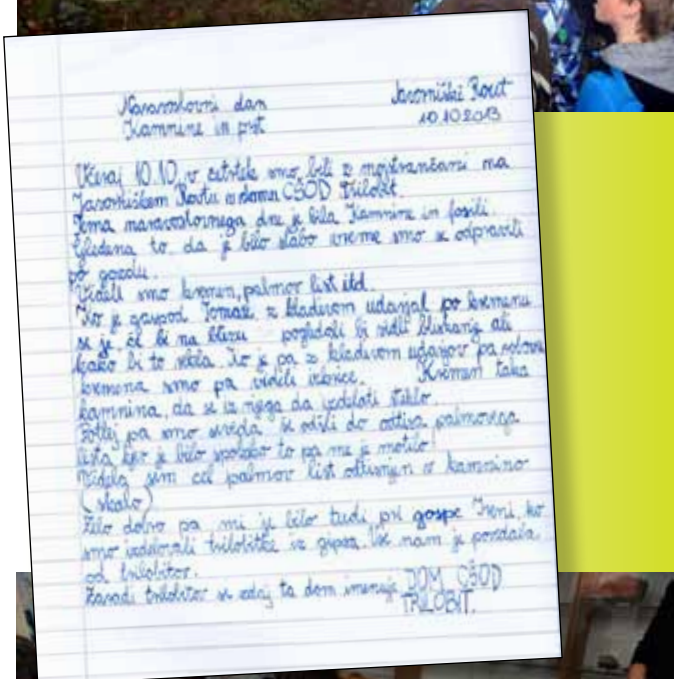 Naravoslovni dan Javorniški Rovt
Kamnine in prst 10.10.2013
Včeraj 10.10. v četrtek smo bili z mojstrančani na
Javorniškem Rovtu v domu CŠOD Trilobit.
Tema naravoslovnega dne je bila Kamnine in fosili.
Glede na to, da je bilo slabo vreme smo se odpravili
po gozdu.
Videli smo kremen, palmov list itd.
Ko je gospod Tomaž z kladivom udarjal po kremenu
se je, če bi na blizu pogledali bi videli bliskanje ali
kako bi to rekla. Ko je pa z kladivom udarjov pa
kremena smo pa videli iskrice. Kremen taka
kamnina, da se iz njega da izdelati steklo.
Potlej pa smo seveda še odšli do odtisa palmovega
lista, kjer je bilo spolzko to pa me je motilo!
Videla sem cel palmov list odtisnjen v kamnino
(skalo)
Zelo dobro pa mi je bilo tudi pri gospe Ireni, ko
smo izdelovali trilobitke iz gipsa. Vse nam je povedala
od trilobitov.
Zaradi trilobitov se zdaj ta dom imenuje DOM CŠOD
TRILOBIT.